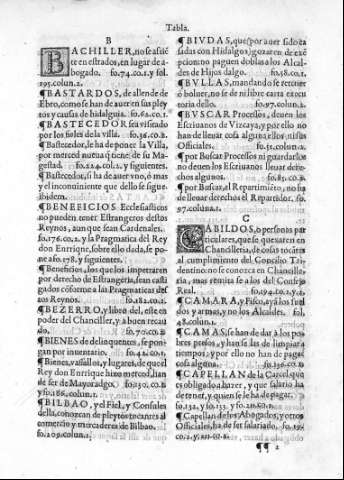 Tabla.
B
BACHILLER, no se asiẽ
te en estrados, en lugar de a-
bogado. fo.74.co.1.y fol.
195.colun.2.
¶BASTARDOS, de allende de
Ebro, como se han de auer en sus pley
tos y causas de hidalguia. fo.62.co.1.
¶BASTECEDOR sea visitado
por los fieles de la villa. fo.36.co.2.
¶Bastecedor, le ha de poner la Villa,
por merced nueua que tiene de su Ma-
gestad. fo.224.co.2.y siguientes.
¶Bastecedor, si ha de auer vno, ò mas
y el inconuiniente que dello se sigue
ibidem.
¶BENEFICIOS Ecclesiasticos
no pueden tener Estrangeros destos
Reynos, aun que sean Cardenales.
fo.176.co.2.y la Pragmatica del Rey
don Enrrique, sobre esto dada, se po-
ne afo.178.y siguientes.
¶Beneficios, los que los impetraren
por derecho de Estrangeria, sean casti
gados cõforme a las Pragmaticas des
tos Reynos. fo.182.co.1.
¶BEZERRO, y libro del, este en
poder del Chanciller, y a buen recau
do. fo.70.co.2.
¶BIENES de delinquentes, se pon-
gan por inuentario. fo.42.co.1.
¶Bienes, vasallos, y lugares, de que el
Rey don Enrrique hizo merced, han
de ser de Mayoradgo. fo.130.co.2.
y fo.186.colun.1.
¶BILBAO, y el Fiel, y Consules
della, conozcan de pleytos tocantes al
comercio y mercaderes de Bilbao.
fo.209.colun.1.
¶BIVDAS, que por auer sido ca
sadas con Hidalgos, gozaren de exẽ-
pcion, no paguen doblas a los Alcal-
des de Hijos dalgo. fo.58.co.1.
¶BVLLAS, mandando se traer
ò boluer, no se de ni libre carta execu
toria dello. fo.97.colun.2.
¶BVSCAR Processos, deuen los
Escriuanos de Vizcaya, y por ello no
han de lleuar cosa alguna, ellos, ni sus
Officiales. fo.51.colun.2.
¶por Buscar Processos ni guardarlos
no deuen los Escriuanos lleuar dere-
chos algunos. fo.85.co.2.
¶por Buscar, al Repartimiẽto, no ha
de lleuar derechos el Repartidor. fo.
97.colun.1.
C
CABILDOS, o personas par
ticulares, que se quexaren en
Chancilleria, de cosas tocãtes
al cumplimiento del Concilio Tri-
dentino: no se conozca en Chancille-
ria, mas remita se a los del Consejo
Real. fo.194.co.1.y.2.
¶CAMARA, y Fisco, aya los suel
dos y armas, y no los Alcaldes. fol.
48.colun.1.
¶CAMAS, se han de dar à los po-
bres presos, y han se las de limpiar a
tiempos: y por ello no han de pagar
cosa alguna. fo.156.co.2.
¶CAPELLAN de la Carcel, que
es obligado a hazer, y que salario ha
de tener, y quien se le ha de pagar.
fo.132.y fo.133. y 210.co.1.
¶Capellan de los Abogados, y otros
Officiales, ha de ser salariado. fo.191.
co.2.y.211.co.2.
¶¶ 2